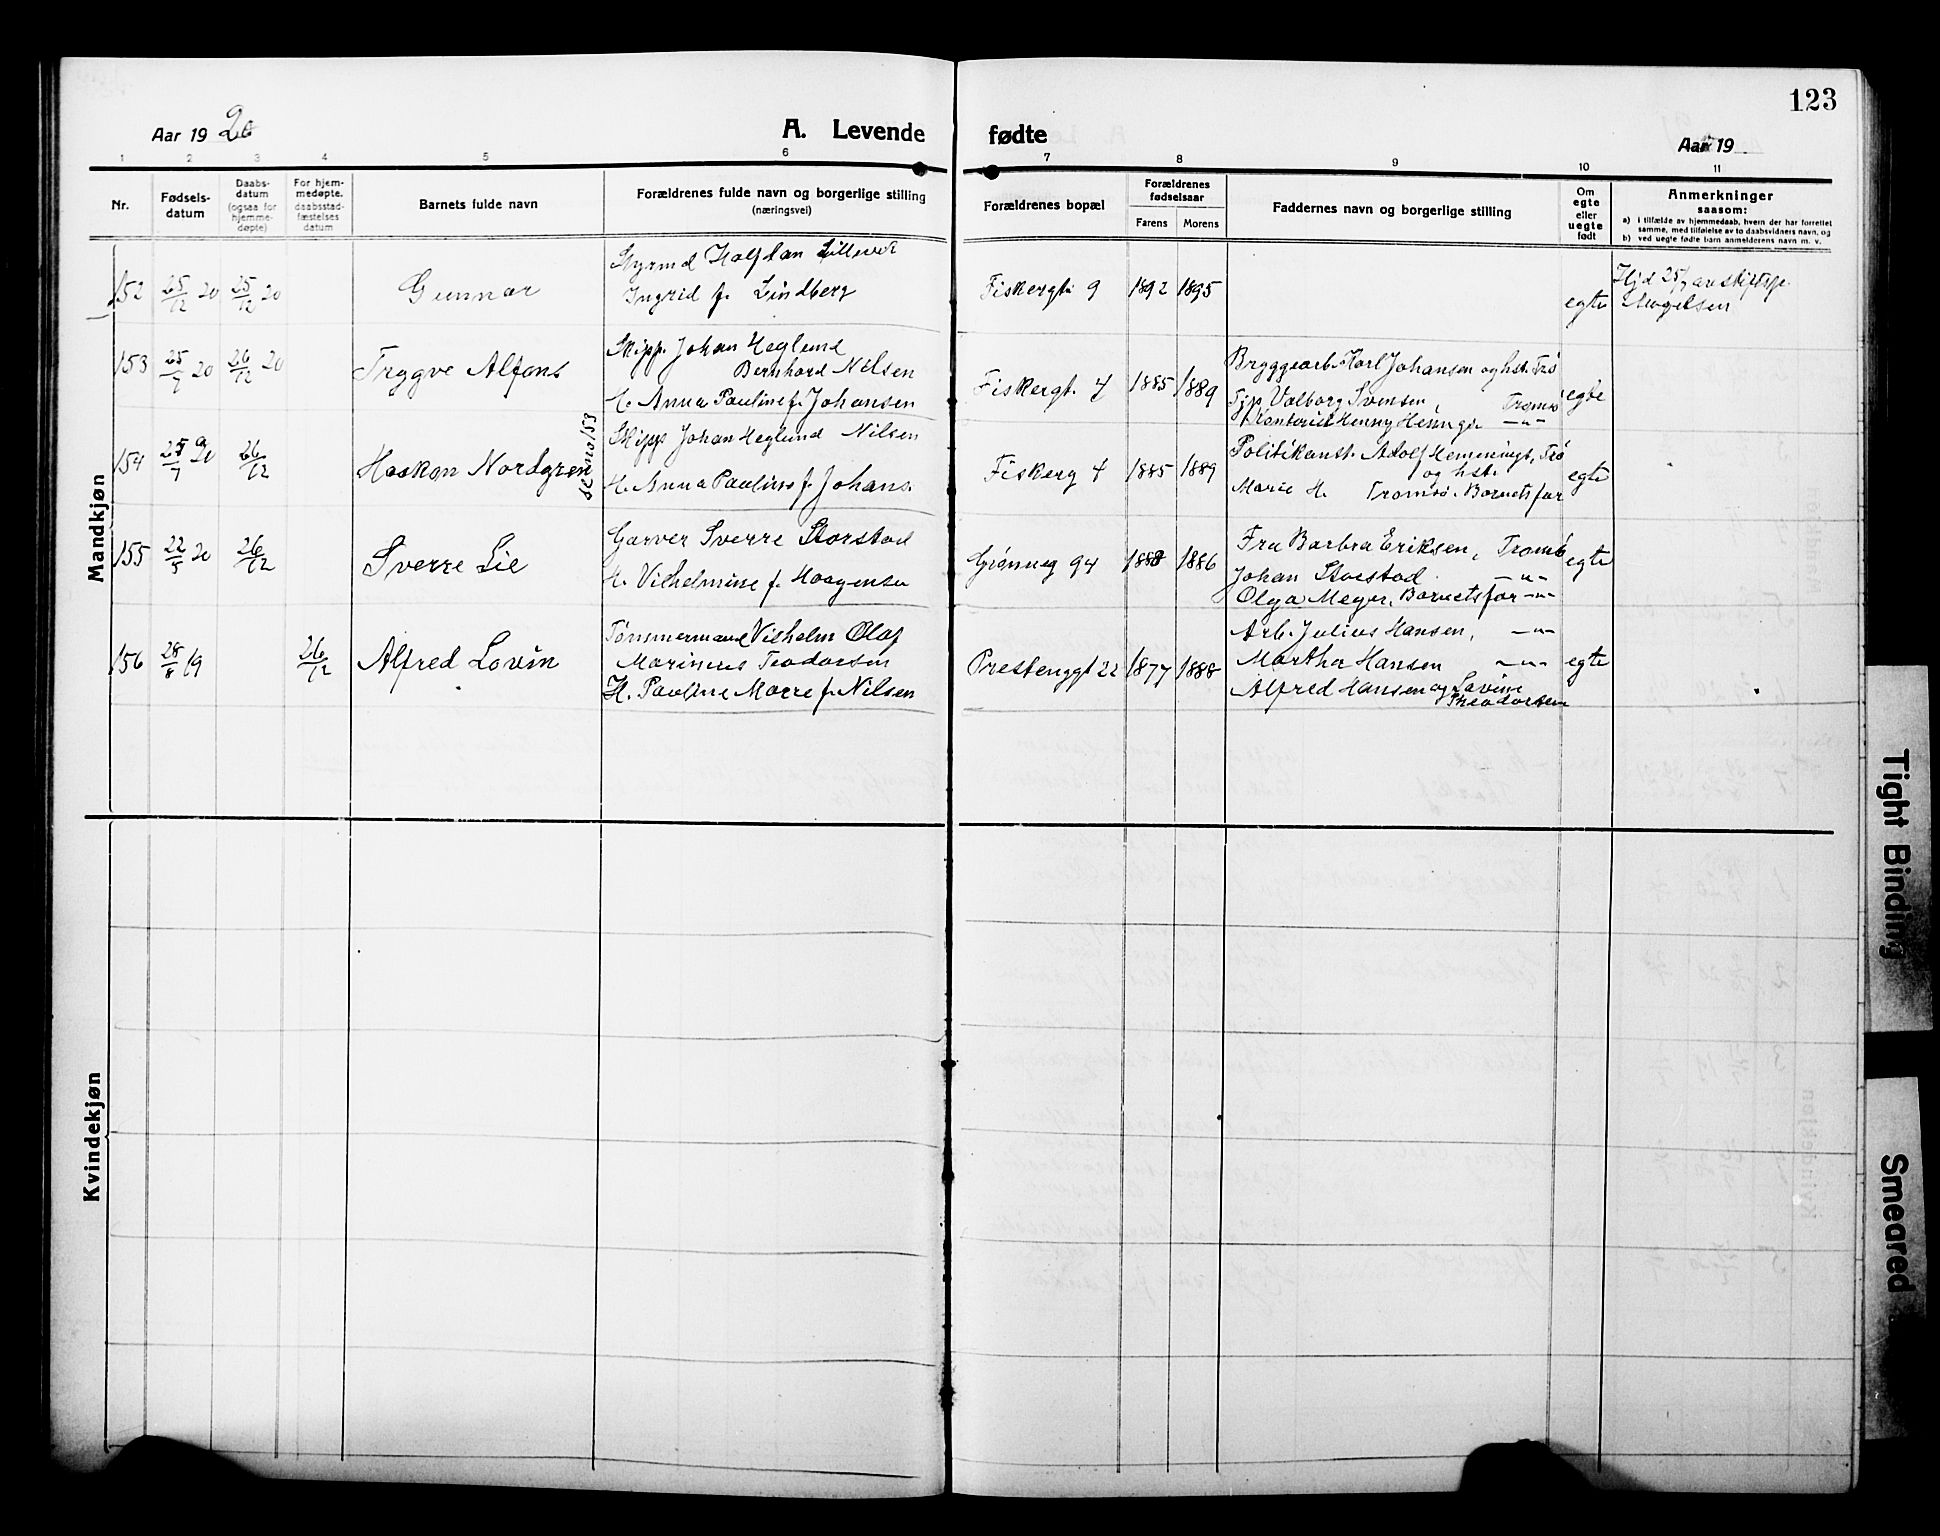 123
Aar 19 20
A. Levende fødte
Aar 19
1 2 3 4 5 6 7 8 9 10 11
Nr.
Fødsels-
datum
Daabs-
datum
(ogsaa for
hjemme-
døpte)
For hjem-
medøpte,
daabsstad-
fæstelses
datum
Barnets fulde navn
Forældrenes fulde navn og borgerlige stilling
(næringsvei)
Forældrenes bopæl
Forældrenes
fødselsaar
Farens Morens
Faddernes navn og borgerlige stilling
Om
egte
eller
uegte
født
Anmerkninger
saasom:
a) i tilfælde av hjemmedaab, hvem der har forrettet
samme, med tilføielse av to daabsvidners navn, og
b) ved uegte fødte barn anmelderens navn m. v.
Mandkjøn
152 25/12 20 25/12 20 Gunnar
Styrmd Halfdan
Ingrid f. Lindberg
Fiskergt. 9 1892 1895 egte
Hjd 25/12
Angelsen
153 25/7 20 26/12 20 Trygve Alfons
Skipp. Johan Heglund
Bernhard Nilsen
H. Anna Pauline f. Johansen
Fiskergt. 4 1885 1889
Bryggearb. Karl Johansen og hst. Trø
Valborg Svensen, Tromsø
Henny —"—
egte
154 25/7 20 26/12 Haakon Nordgren
se no 153
Skipp Johan Heglund Nilsen
H. Anna Pauline f. Johans.
Fiskerg 4 1885 1889
Politikonst. Adolf Hemmingt, Trø
og hst.
Marie H. Tromsø. Barnets far
egte
155 22/5 20 26/12 Sverre Lie
Garver Sverre Storstad
H. Vilhelmine f. Haagensen
Grønneg 94 1888 1886
Fru Barbra Eriksen, Tromsø
Johan Storstad —"—
Olga Meyer, Barnets far —"—
egte
156 28/8 19 26/12 Alfred Lovin
Tømmermand Vilhelm Olaf
Marinius Teodorsen
H. Pauline Marre f. Nilsen
Prestenggt 22 1877 1888
Arb. Julius Hansen, —"—
Martha Hansen —"—
Alfred Hansen og Lovine
Theodorsen
egte
Kvindekjøn
Tight Binding
Smeared